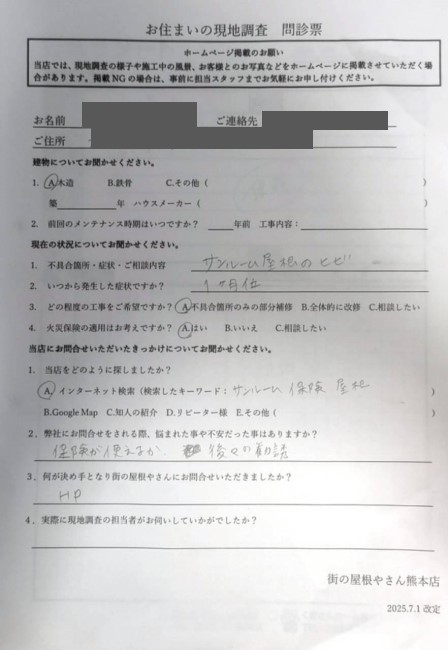 お住まいの現地調査 問診票
ホームページ掲載のお願い
当店では、現地調査の様子や施工中の風景、お客様とのお写真などをホームページに掲載させていただく場
合があります。掲載NGの場合は、事前に担当スタッフまでお気軽にお申し付けください。
お名前 ご連絡先
ご住所
建物についてお聞かせください。
1. A.木造 B.鉄骨 C.その他 ( )
築 年 ハウスメーカー ( )
2. 前回のメンテナンス時期はいつですか? 年前 工事内容:
現在の状況についてお聞かせください。
1. 不具合箇所・症状・ご相談内容 サンルーム屋根のヒビ
2. いつから発生した症状ですか? 1ヶ月位
3. どの程度の工事をご希望ですか? A.不具合箇所のみの部分補修 B.全体的に改修 C.相談したい
4. 火災保険の適用はお考えですか? A.はい B.いいえ C.相談したい
当店にお問合せいただいたきっかけについてお聞かせください。
1. 当店をどのように探しましたか?
A. インターネット検索 (検索したキーワード: サンルーム 保険 屋根 )
B.Google Map C.知人の紹介 D.リピーター様 E.その他 ( )
2. 弊社にお問合せをされる際、悩まれた事や不安だった事はありますか?
保険が使えるか 後々の勧誘
3. 何が決め手となり街の屋根やさんにお問合せいただきましたか?
HP
4. 実際に現地調査の担当者がお伺いしていかがでしたか?
街の屋根やさん熊本店
2025.7.1 改定